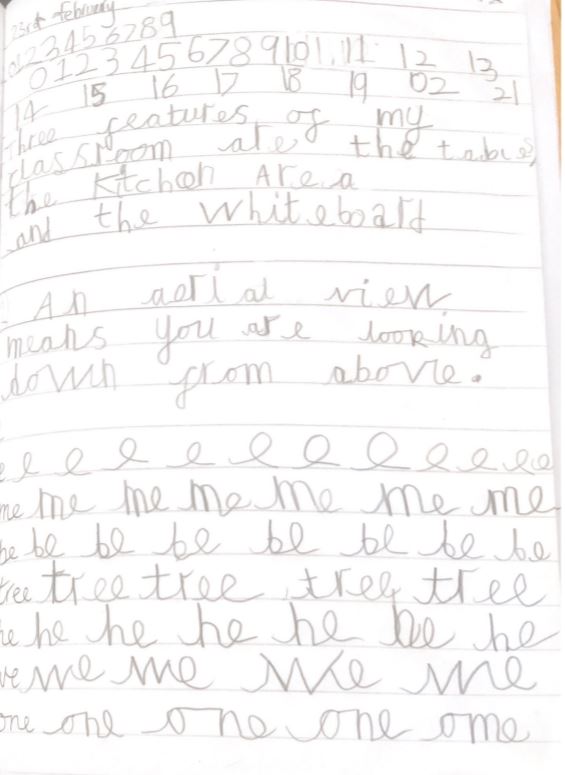 23rd february
0123456789
0123456789101.11 12 13
14 15 16 17 18 19 02 21
three features of my
classroom are the tables,
the Kitchen Area
and the whiteboard
An aerial view
means you are looking
down from above.
e e e e e e e e e e e e
me me me me me me me
be be be be be be be be
tree tree tree tree tree
he he he he he he he
we we we we we
one one one one ome